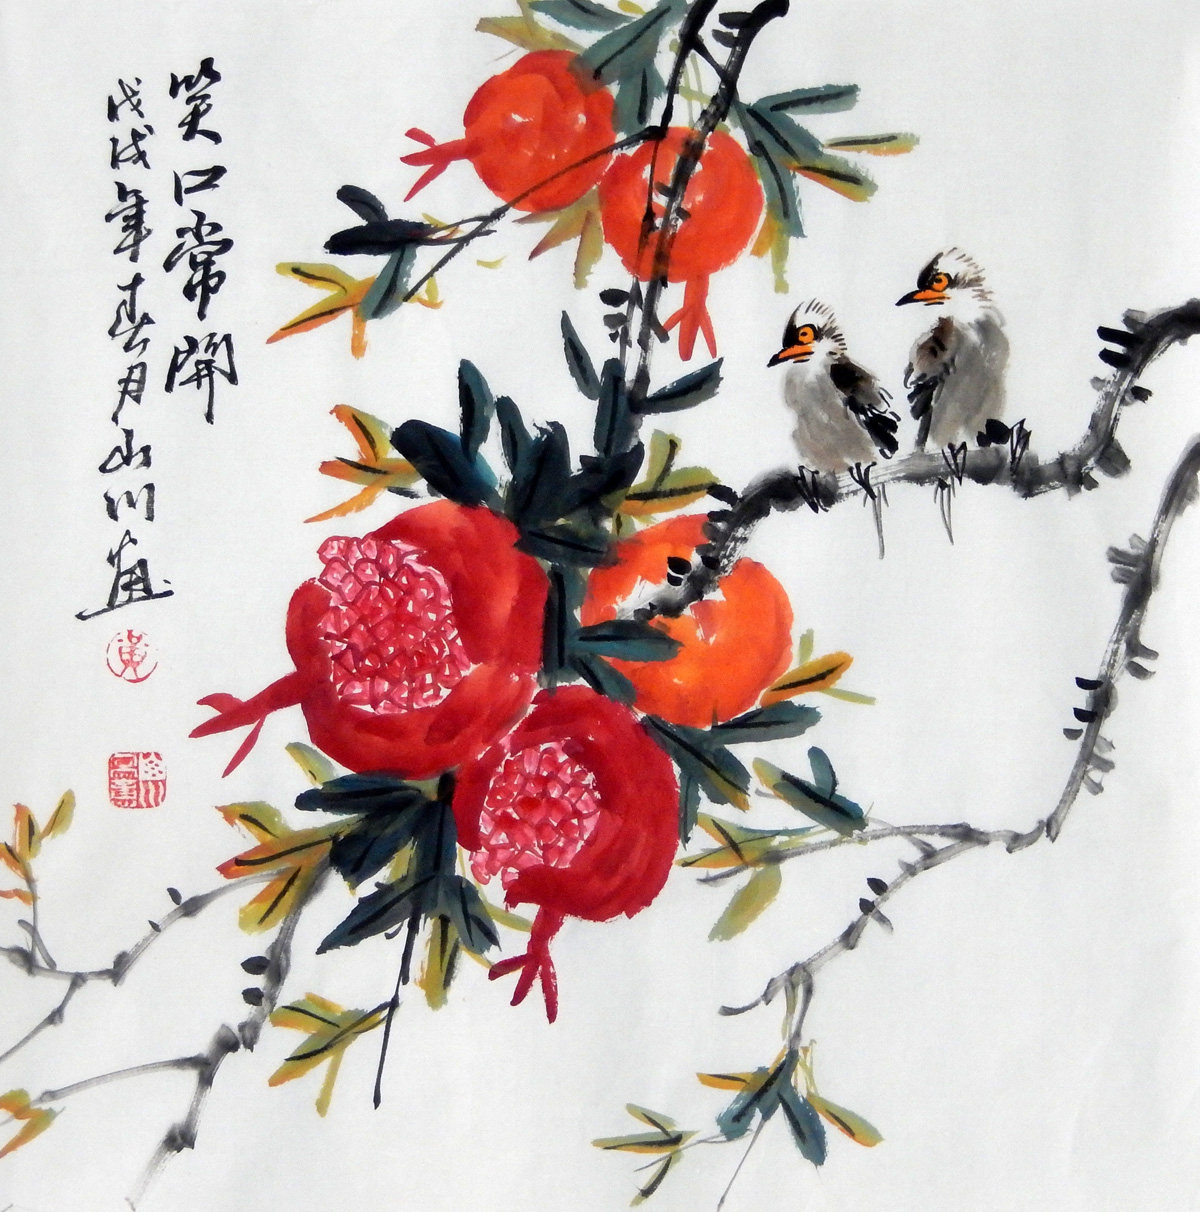 笑口常開
戊戌年春月山川畫
黃